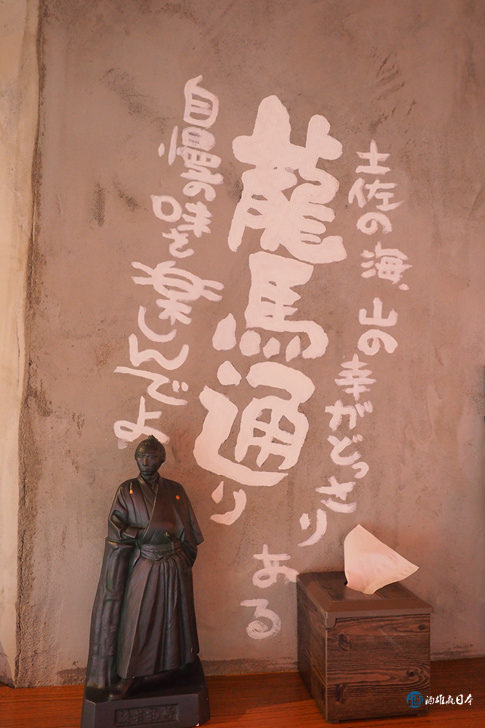 土佐の海、山の幸がどっさりある
龍馬通り
自慢の味を楽しんでよ
酒雄在日本